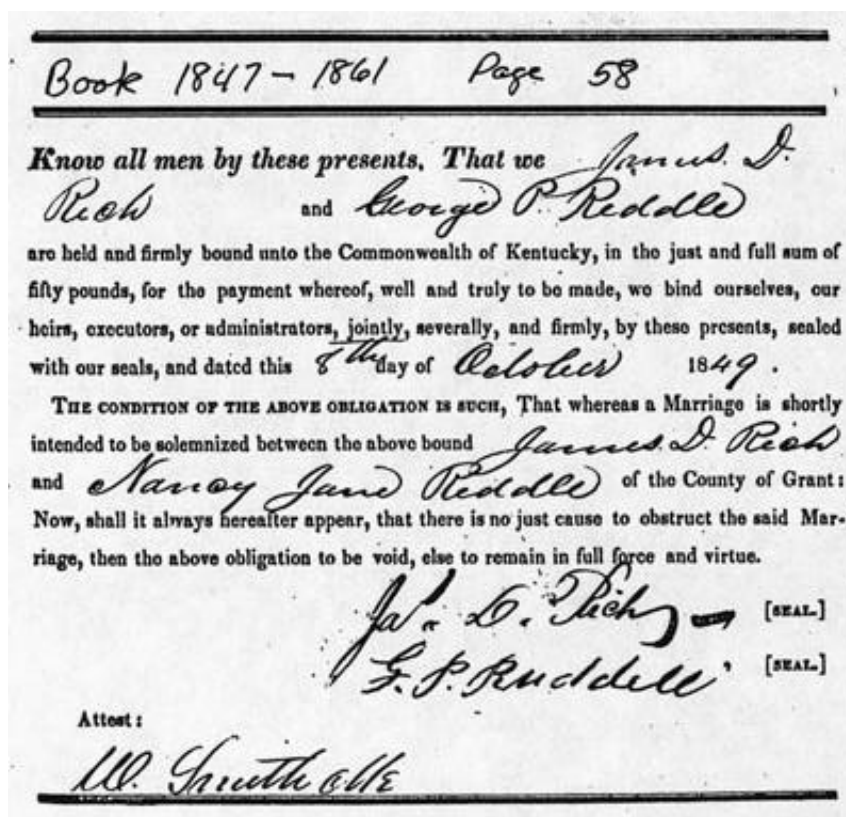 Book 1847 - 1861 Page 58
Know all men by these presents, That we James. D.
Rich and George P. Riddle
are held and firmly bound unto the Commonwealth of Kentucky, in the just and full sum of
fifty pounds, for the payment whereof, well and truly to be made, we bind ourselves, our
heirs, executors, or administrators, jointly, severally, and firmly, by these presents, sealed
with our seals, and dated this 8th day of October 1849.
THE CONDITION OF THE ABOVE OBLIGATION IS SUCH, That whereas a Marriage is shortly
intended to be solemnized between the above bound James. D. Rich
and Nancy Jane Riddle of the County of Grant:
Now, shall it always hereafter appear, that there is no just cause to obstruct the said Mar-
riage, then the above obligation to be void, else to remain in full force and virtue.
Jas. D. Rich [SEAL.]
G. P. Ruddell [SEAL.]
Attest:
W. Smith